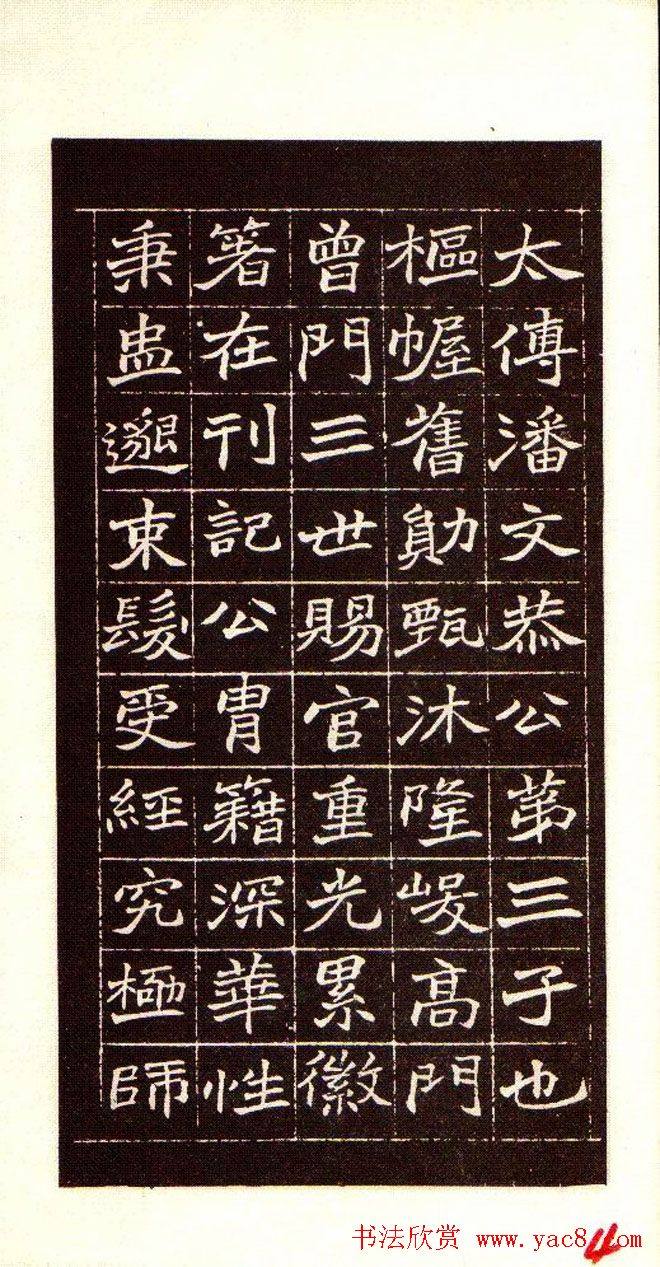 太傅潘文恭公苐三子也
樞幄舊勛甄沐隆峻高門
曾門三世賜官重光累徽
箸在刊記公胄籍深華性
秉盅邈束髮受經究極師
书法欣赏 www.yac8
4